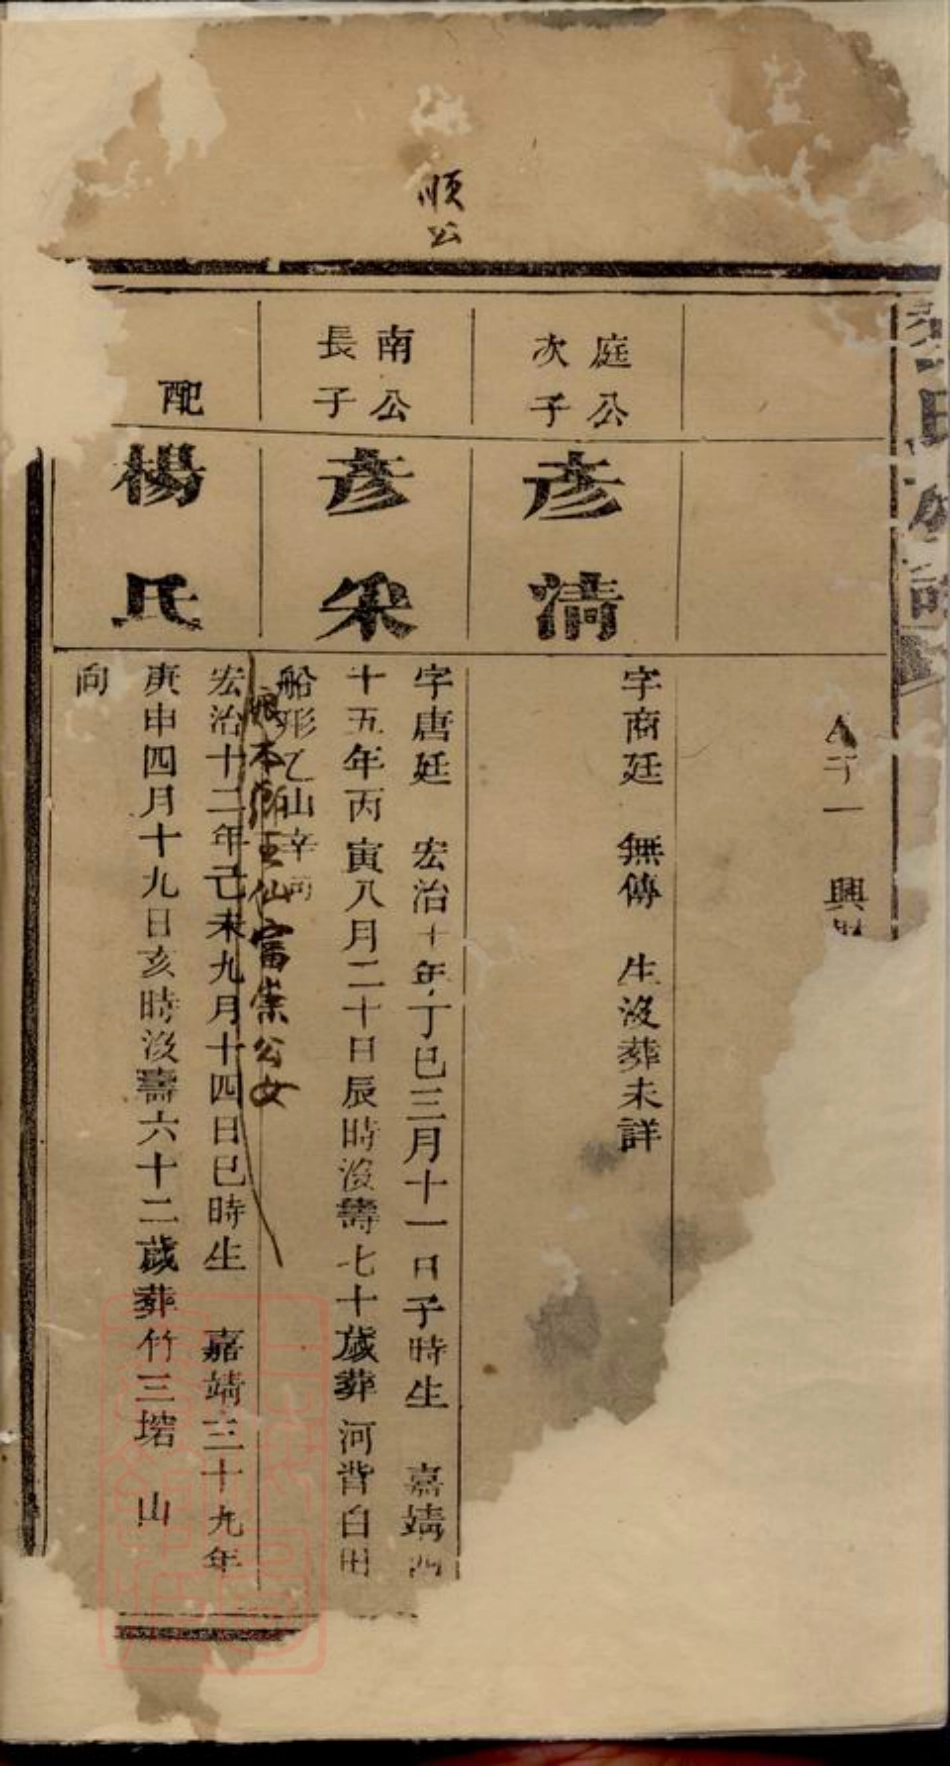 順公
氏
庭公
次子
彥清
字商廷　無傳　生沒葬未詳
南公
長子
彥釆
字唐廷　宏治十年丁巳三月十一日子時生　嘉靖四
十五年丙寅八月二十日辰時沒壽七十歲葬河背白田
船形乙山辛向
配
楊氏
宏治十二年己未九月十四日巳時生　嘉靖三十九年
庚申四月十九日亥時沒壽六十二歲葬竹三塔　山
向
富崇公女